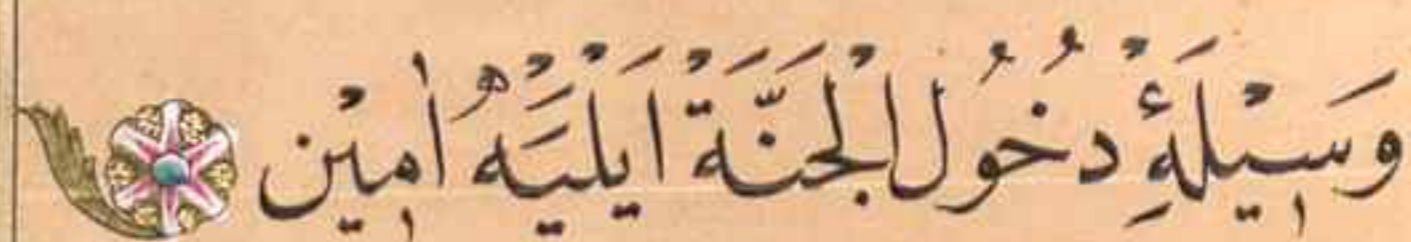 وَسِيْلَۀِٔ دُخُولِ الْجَنَّةْ اَيْلِيَهْ اٰمِيْن